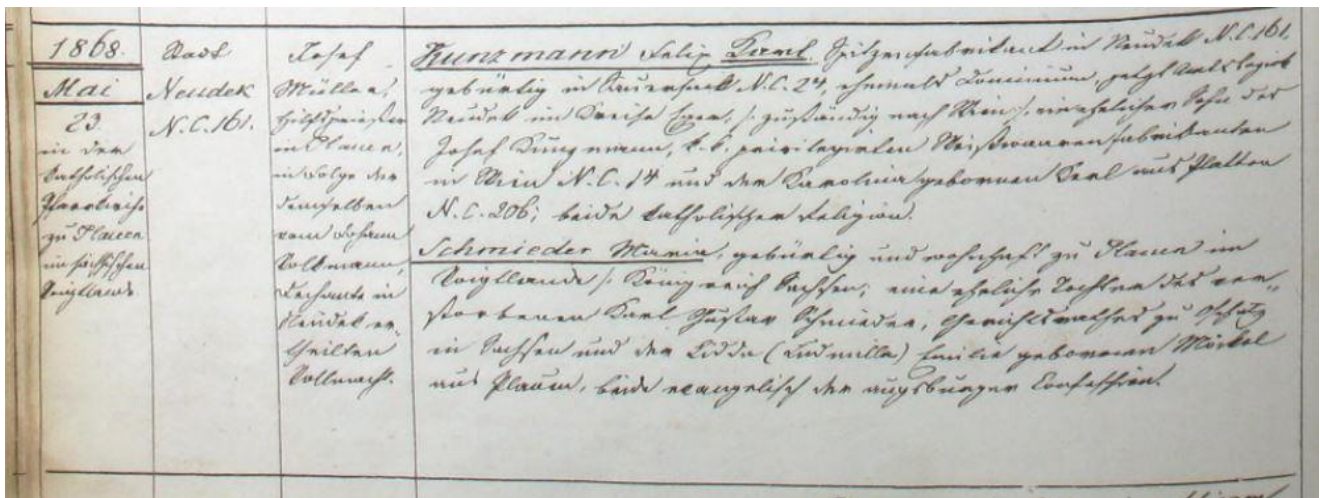 1868.
Mai
23.
in der
katholischen
Pfarrkirche
zu Plauen
im sächsischen
Voigtlande.
Stadt
Neudek
N.C. 161.
Josef
Müller,
Hilfspriester
in Plauen,
in Folge der
demselben
vom Johann
Volkmann,
Dechante in
Neudek er-
theilten
Vollmacht.
Kunzmann Felix Karl, Spitzenfabrikant in Neudek N.C. 161,
gebürtig in Sauersack N.C. 24, ehemals Dominium, jetzt Amtsbezirk
Neudek im Kreise Eger, /: zuständig nach Wien :/, ein ehelicher Sohn des
Josef Kunzmann, k.k. privilegirten Weißwaarenfabrikanten
in Wien N.C. 14 und der Karolina gebornen Kerl aus Platten
N.C. 206; beide katholischer Religion.
Schmieder Maria, gebürtig und wohnhaft zu Plauen im
Voigtlande /: Königreich Sachsen; eine eheliche Tochter des ver-
storbenen Karl Gustav Schmieder, Gerichtsrathes zu Oschatz
in Sachsen und der Lidda (Ludmilla) Emilie gebornen Möckel
aus Plauen, beide evangelisch der augsburger Confession.